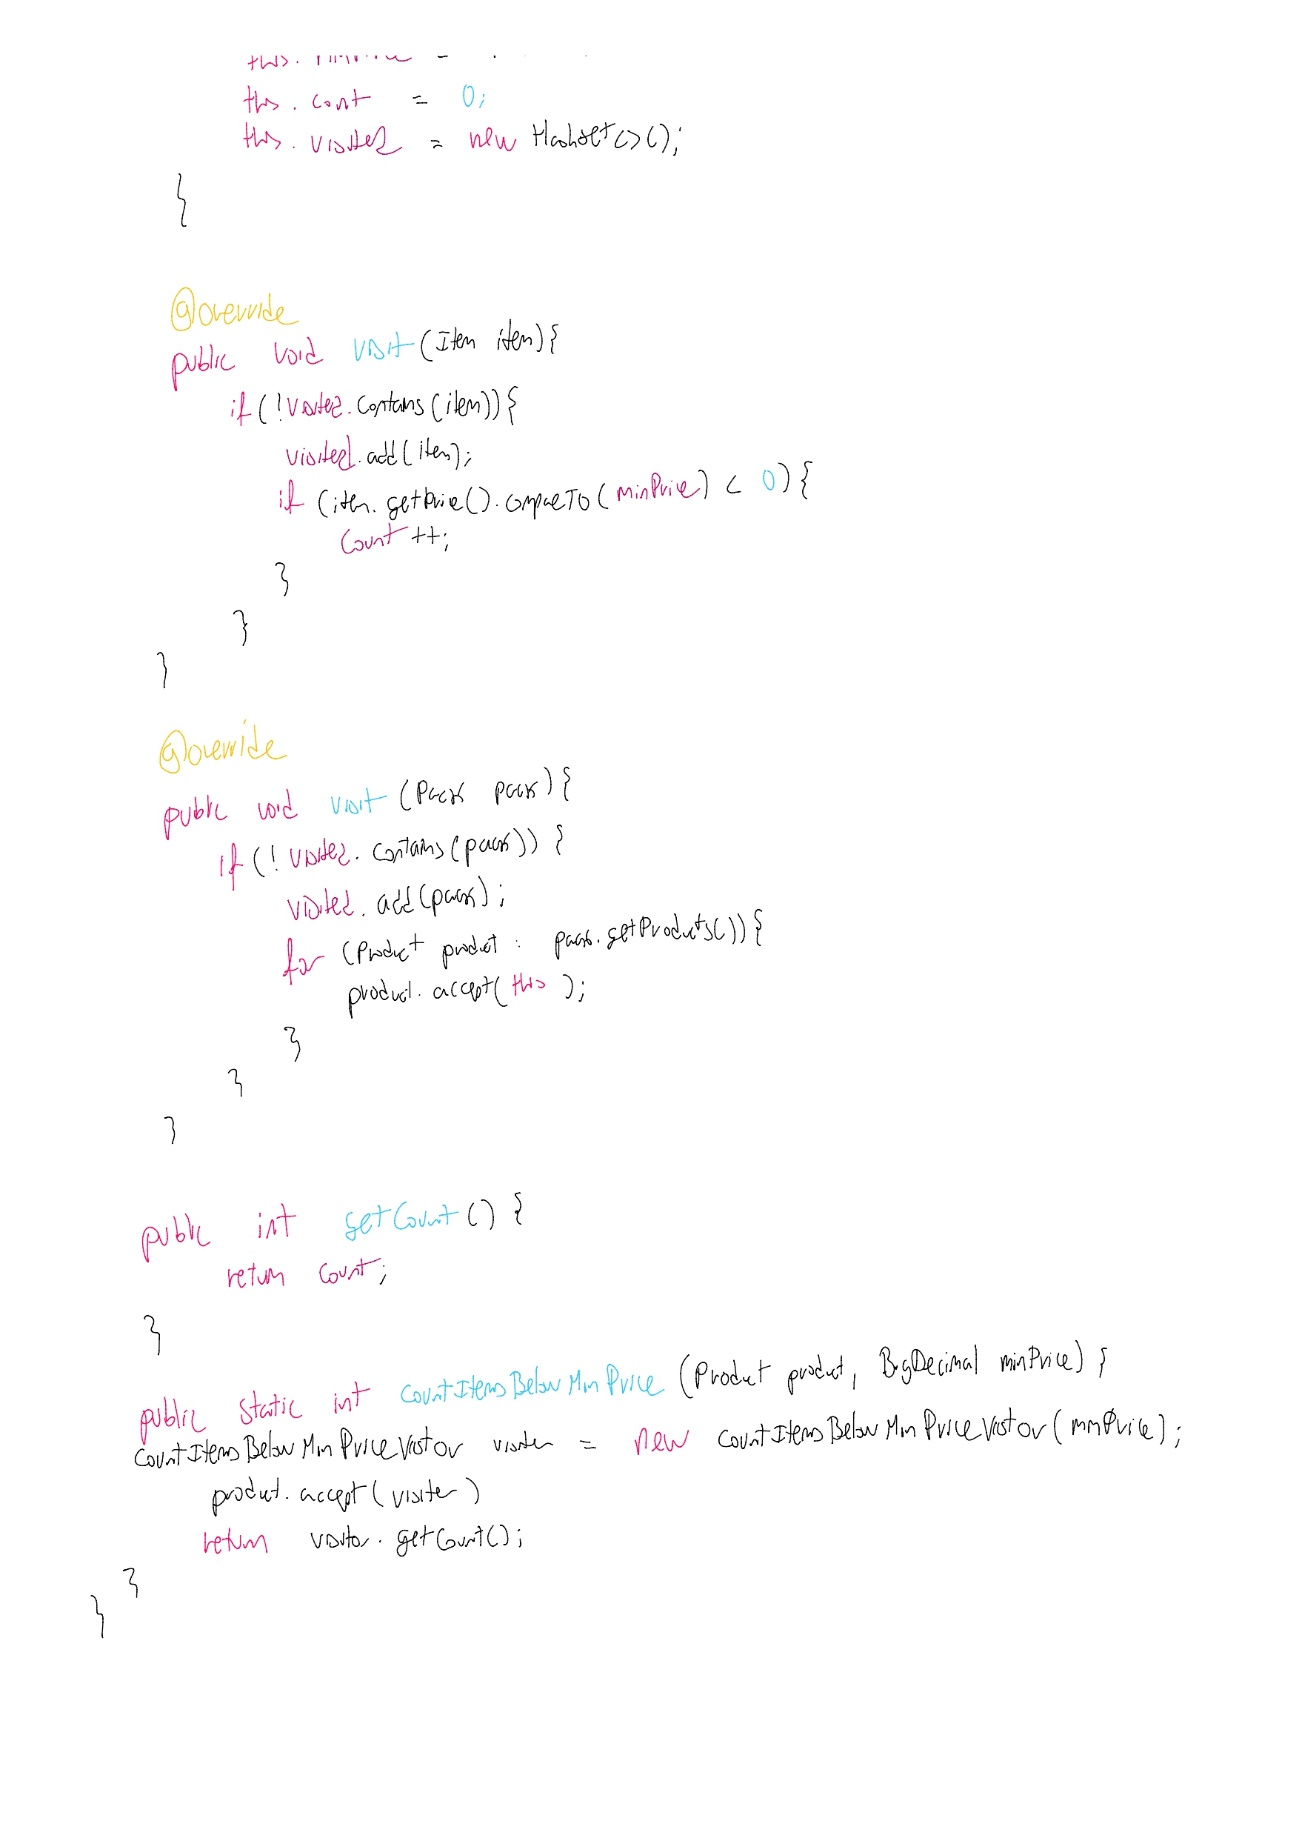 this.
this.cont = 0;
this.visited = new HashSet<>();
}
@Override
public void visit(Item item){
if(!visited.contains(item)){
visited.add(item);
if (item.getPrice().compareTo(minPrice) < 0){
count++;
}
}
}
@Override
public void visit (Pack pack){
if(!visited.contains(pack)) {
visited.add(pack);
for (Product product : pack.getProducts()){
product.accept(this);
}
}
}
public int getCount() {
return count;
}
public static int CountItemsBelowMinPrice (Product product, BigDecimal minPrice) {
CountItemsBelowMinPriceVisitor visitor = new CountItemsBelowMinPriceVisitor(minPrice);
product.accept(visitor)
return visitor.getCount();
}
}